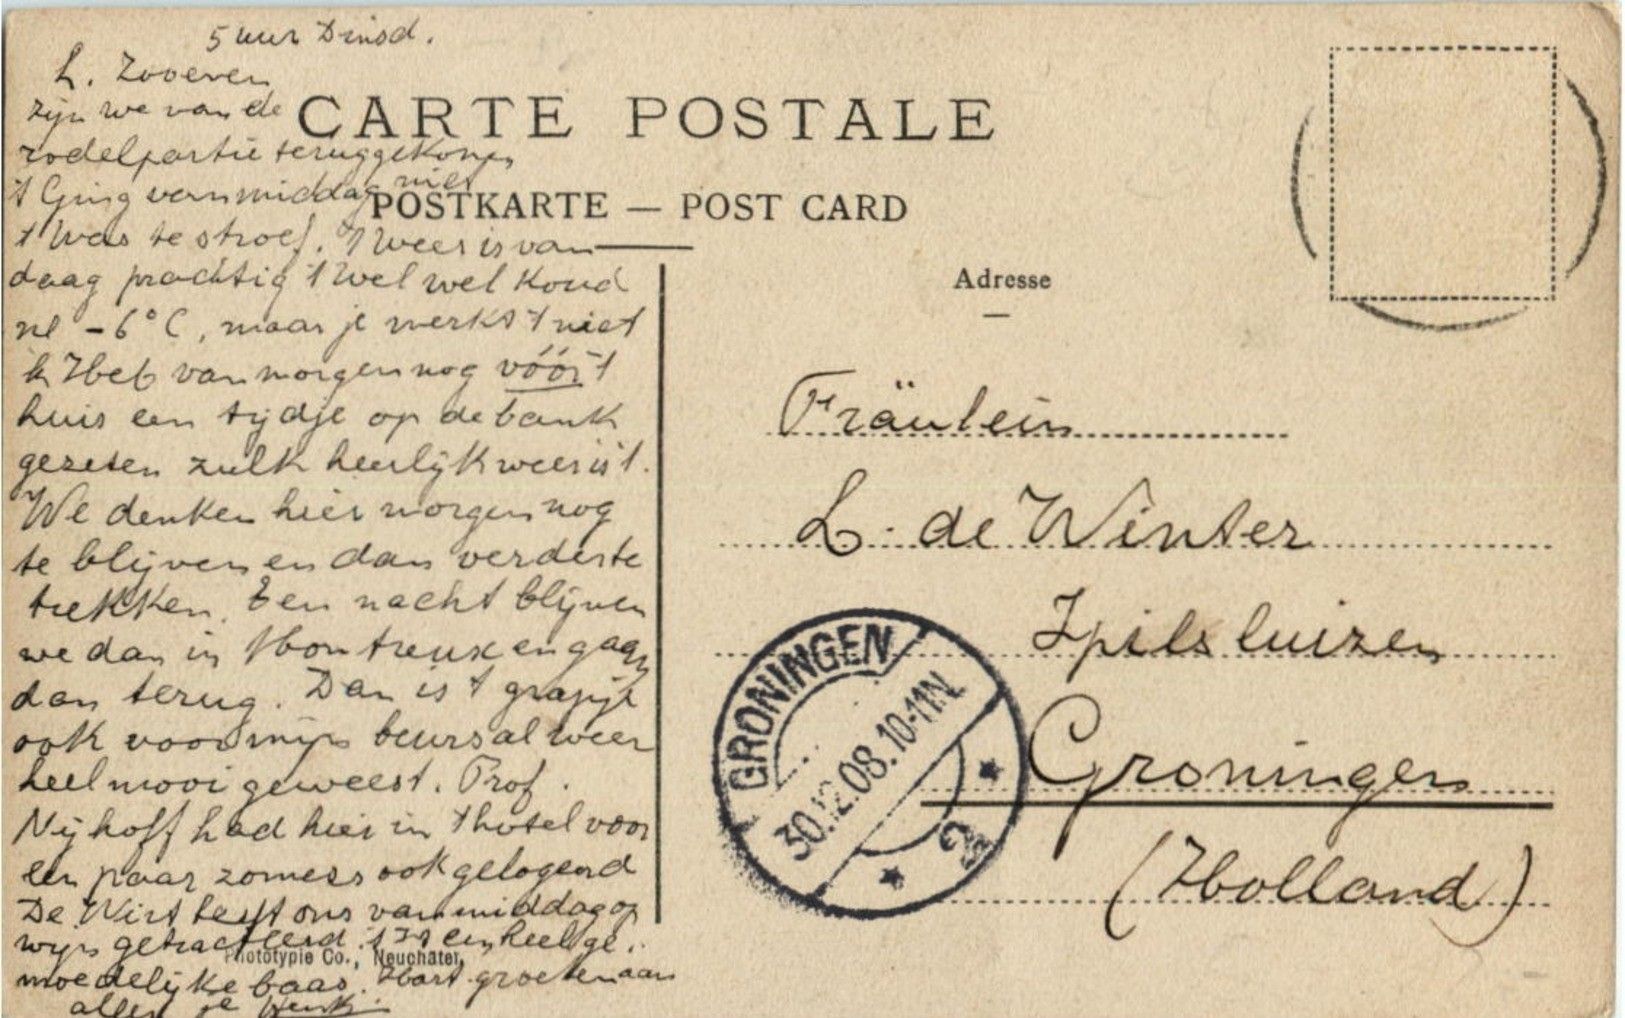 5 uur Dinsd.
L. Zooeven
zijn we van de
rodelpartie teruggekomen
't Ging vanmiddag niet
't Was te stroef. 't Weer is van
daag prachtig 't Wel wel koud
nl -6°C, maar je merkt 't niet
Ik Heb vanmorgen nog vóór 't
huis een tijdje op de bank
gezeten zulk heerlijk weer is 't.
We denken hier morgen nog
te blijven en dan verder te
trekken. Een nacht blijven
we dan in Montreux en gaan
dan terug. Dan is 't grapje
ook voor mijn beurs al weer
heel mooi geweest. Prof.
Nijhoff had hier in 't hotel voor
een paar zomers ook gelogeerd
De Wirt heeft ons vanmiddag op
wijn getracteerd. 't Is een heel ge-
moedelijke baas. Hart. groeten aan
allen je Henk.
CARTE POSTALE
POSTKARTE — POST CARD
Adresse
Fräulein
L. de Winter
Spilsluizen
Groningen
(Holland)
GRONINGEN
30.12.08.10-11N
2
Phototypie Co., Neuchâtel